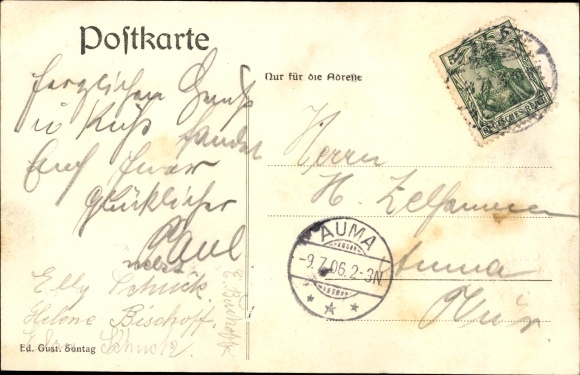 Postkarte
Nur für die Adresse
herzlichen Gruß
u Kuß sendet
Euch Euer
glücklicher
Paul
nebst
Elly Schuck.
Helene Bischoff.
Schuck
E. Bischoff
Ed. Gust. Sontag
Herrn
H.
Auma
AUMA
-9.7.06.2-3N
* * *
5
DEUTSCHES REICH